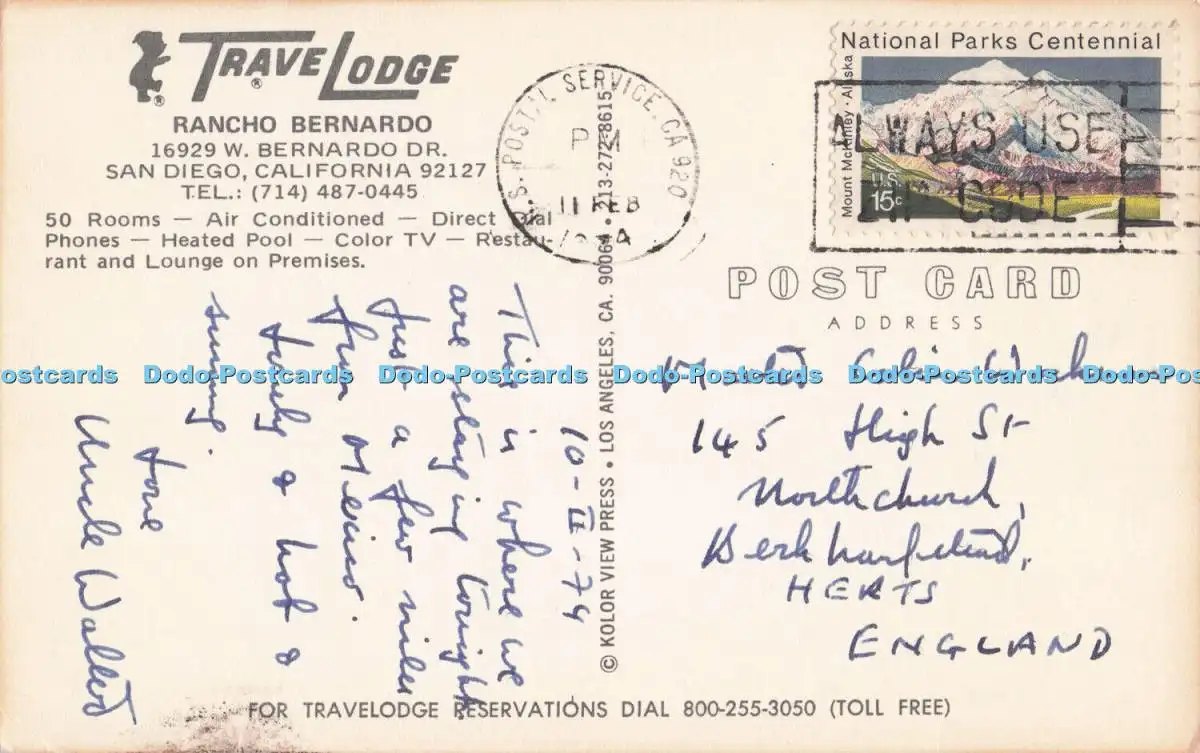 TRAVELODGE
®
®
RANCHO BERNARDO
16929 W. BERNARDO DR.
SAN DIEGO, CALIFORNIA 92127
TEL.: (714) 487-0445
50 Rooms — Air Conditioned — Direct Dial
Phones — Heated Pool — Color TV — Restau-
rant and Lounge on Premises.
U.S. POSTAL SERVICE, CA 920
PM
11 FEB
National Parks Centennial
Mount McKinley · Alaska
U.S.
15c
ALWAYS USE
ZIP CODE
POST CARD
ADDRESS
10-II-74
This is where we
are staying tonight
Just a few miles
from Mexico.
Lovely & hot &
sunny.
Love
Uncle Walter
© KOLOR VIEW PRESS • LOS ANGELES, CA. 90064 • 213-272-8615
145 High St
Northchurch,
Berkhampstead,
HERTS
ENGLAND
ostcards Dodo-Postcards Dodo-Postcards Dodo-Postcards Dodo-Postcards Dodo-
FOR TRAVELODGE RESERVATIONS DIAL 800-255-3050 (TOLL FREE)